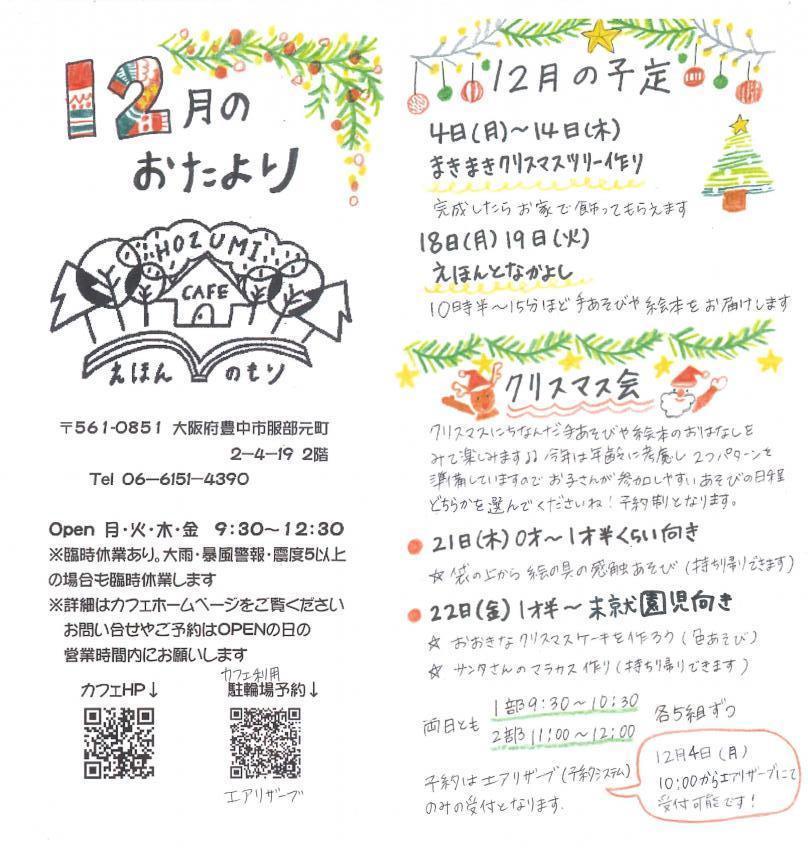 12月の
おたより
HOZUMI
CAFE
えほん のもり
〒561-0851 大阪府豊中市服部元町
2-4-19 2階
Tel 06-6151-4390
Open 月・火・木・金 9:30~12:30
※臨時休業あり。大雨・暴風警報・震度5以上
の場合も臨時休業します
※詳細はカフェホームページをご覧ください
お問い合せやご予約はOPENの日の
営業時間内にお願いします
カフェ利用
カフェHP↓ 駐輪場予約↓
エアリザーブ
12月の予定
4日(月)~14日(木)
まきまきクリスマスツリー作り
完成したらお家で飾ってもらえます
18日(月)19日(火)
えほんとなかよし
10時半~15分ほど手あそびや絵本をお届けします
クリスマス会
クリスマスにちなんだ手あそびや絵本のおはなしを
みて楽しみます♪今年は年齢に考慮し2つパターンを
準備していますのでお子さんが参加しやすいあそびの日程
どちらかを選んでくださいね!予約制となります。
21日(木)0才~1才半くらい向き
☆袋の上から絵の具の感触あそび(持ち帰りできます)
22日(金)1才半~未就園児向き
☆おおきなクリスマスケーキを作ろう(色あそび)
☆サンタさんのマラカス作り(持ち帰りできます)
両日とも 1部9:30~10:30 各5組ずつ
2部11:00~12:00
予約はエアリザーブ(予約システム)
のみの受付となります.
12月4日(月)
10:00からエアリザーブにて
受付可能です!